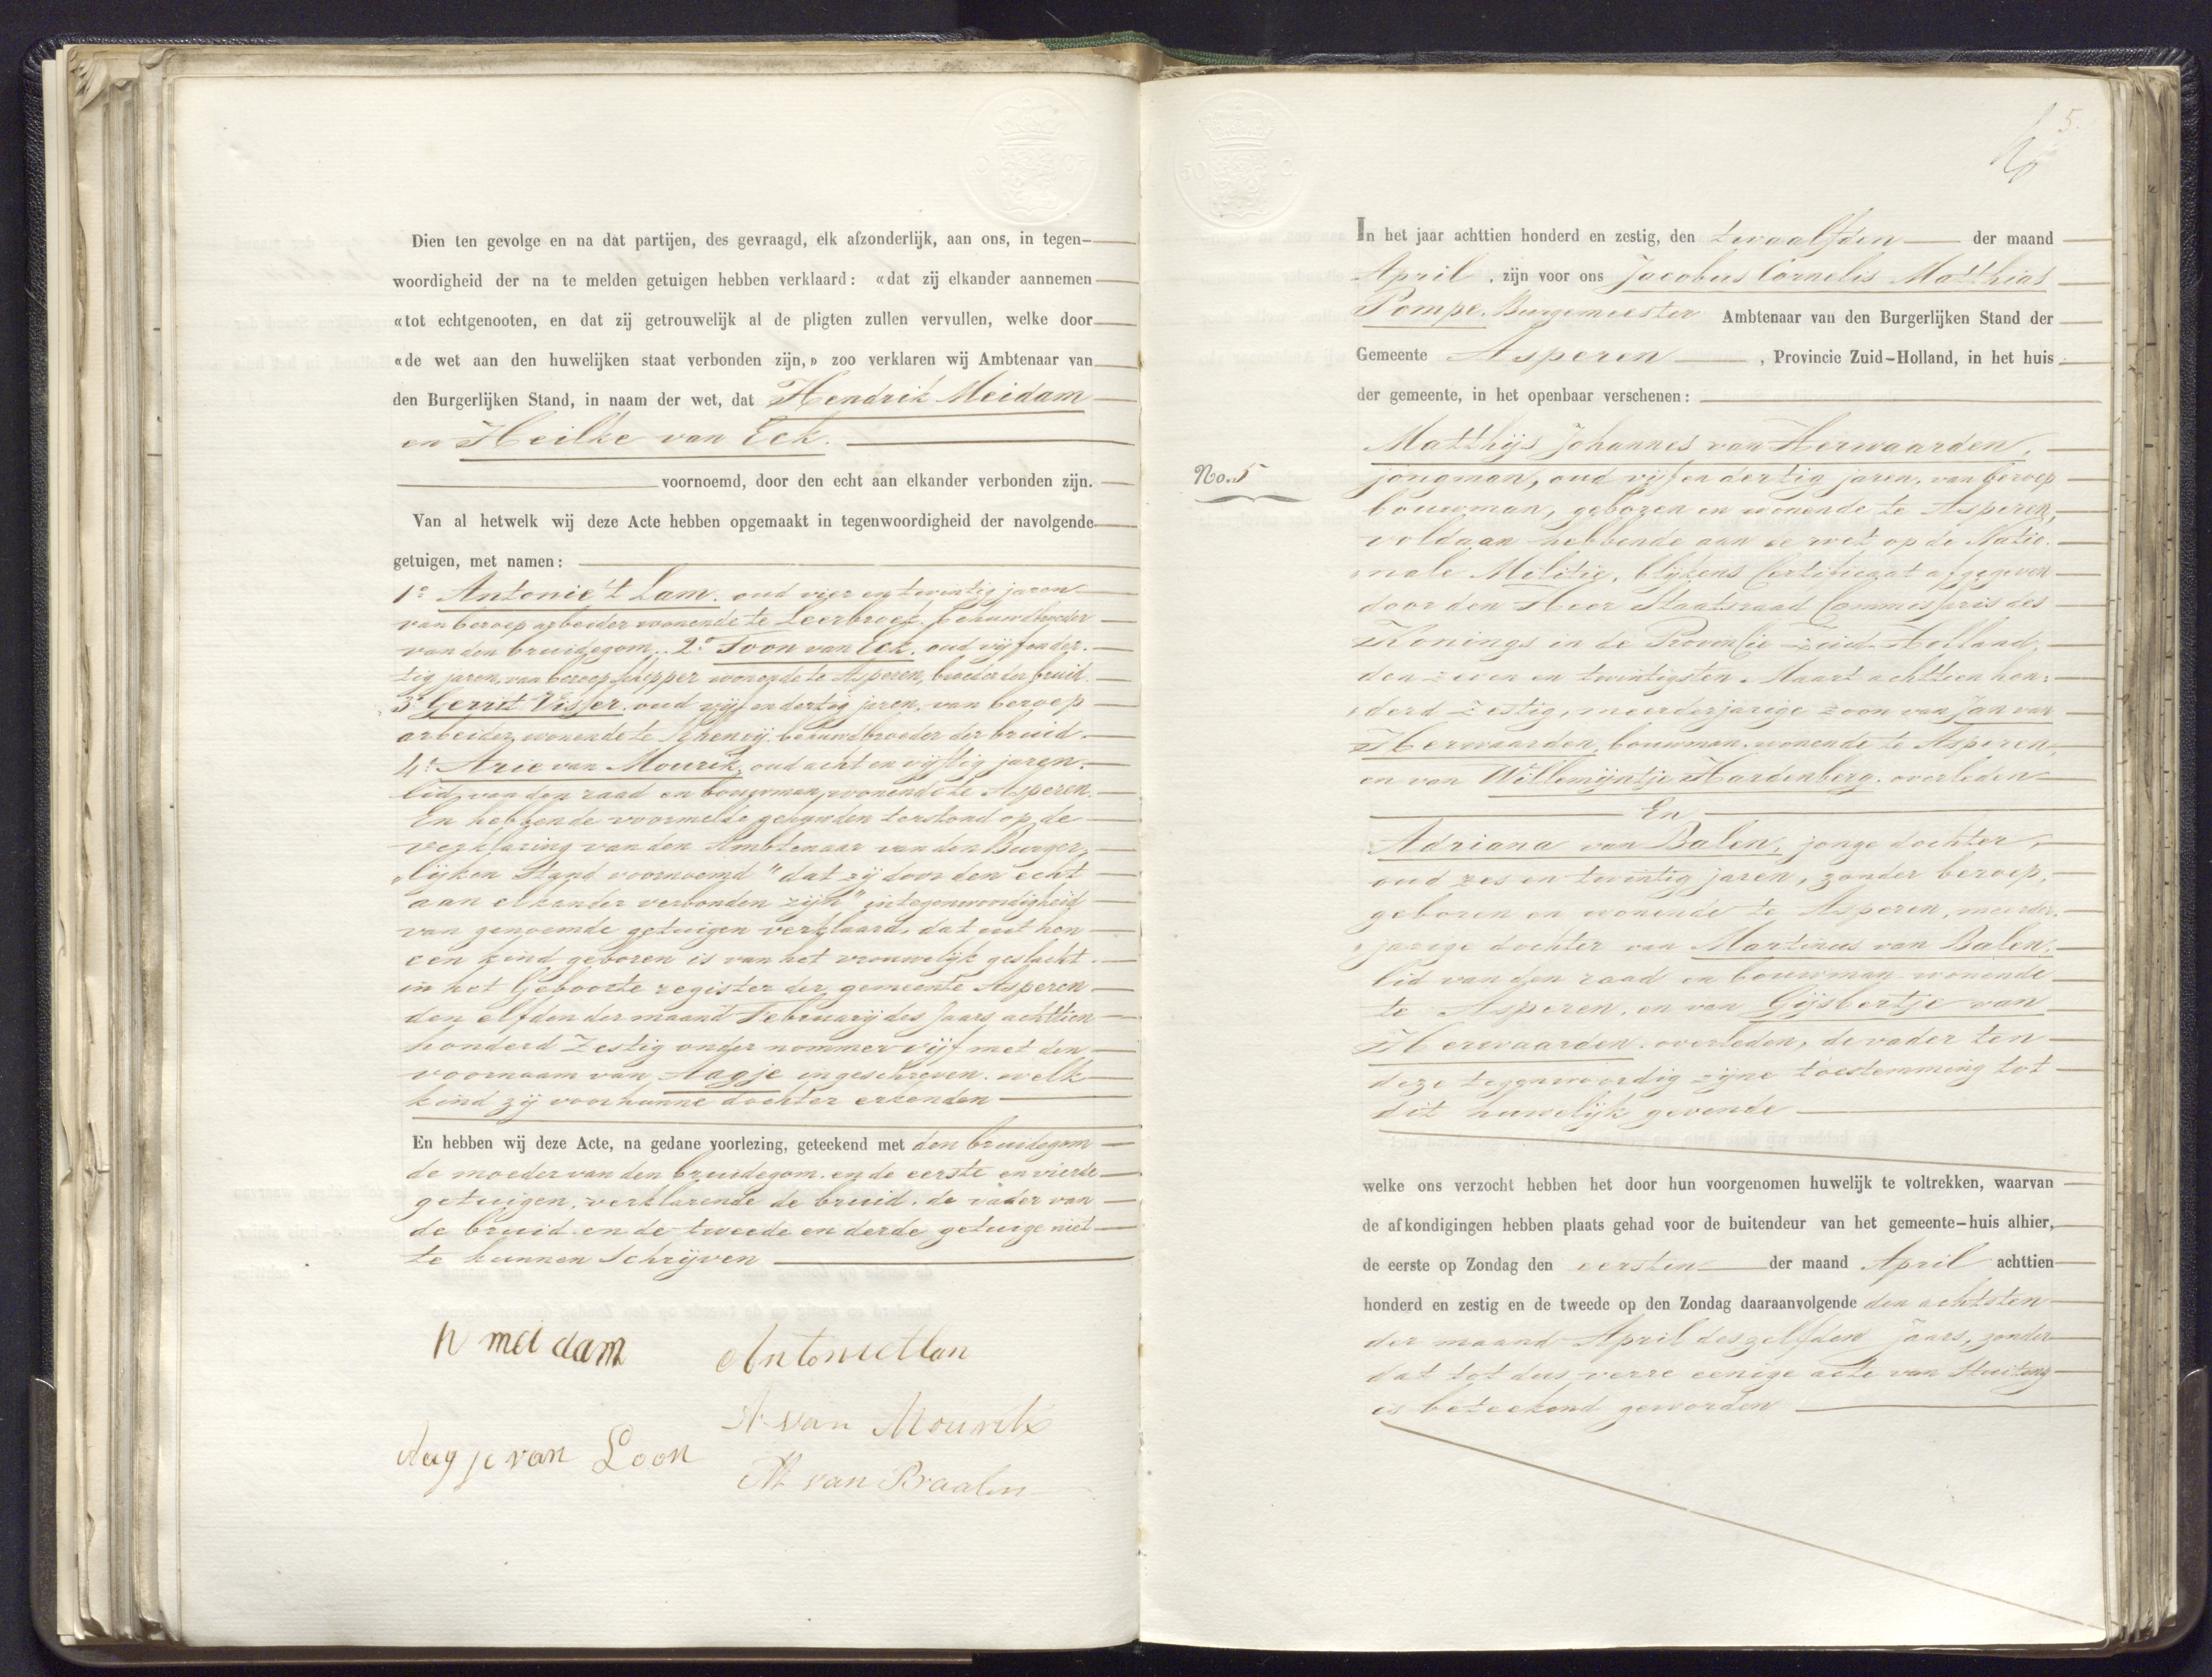 Dien ten gevolge en na dat partijen, des gevraagd, elk afzonderlijk, aan ons, in tegen-
woordigheid der na te melden getuigen hebben verklaard: «dat zij elkander aannemen
«tot echtgenooten, en dat zij getrouwelijk al de pligten zullen vervullen, welke door
«de wet aan den huwelijken staat verbonden zijn,» zoo verklaren wij Ambtenaar van
den Burgerlijken Stand, in naam der wet, dat Hendrik Meidam
en Heilke van Eck.
voornoemd, door den echt aan elkander verbonden zijn.
Van al hetwelk wij deze Acte hebben opgemaakt in tegenwoordigheid der navolgende
getuigen, met namen:
1o Antonie 't Lam. oud vier en twintig jaren
van beroep arbeider wonende te Leerbroek, behuwdbroeder
van den bruidegom. 2o Toon van Eck. oud vijf en der-
tig jaren, van beroep schipper wonende te Asperen, broeder der bruid.
3o Gerrit Visser. oud vijf en dertig jaren, van beroep
arbeider, wonende te Rhenoij. behuwdbroeder der bruid.
4o Arie van Mourik, oud acht en vijftig jaren.
lid van den raad en bouwman, wonende te Asperen.
En hebbende voormelde gehuwden terstond op de
verklaring van den Ambtenaar van den Burger-
lijken Stand voornoemd "dat zij door den echt
aan elkander verbonden zijn" in tegenwoordigheid
van genoemde getuigen verklaard, dat uit hen
een kind geboren is van het vrouwelijk geslacht.
in het Geboorte register der gemeente Asperen
den elfden der maand Februarij des Jaars achttien
honderd Zestig onder nommer vijf met den
voornaam van Aagje ingeschreven. welk
kind zij voor hunne dochter erkenden
En hebben wij deze Acte, na gedane voorlezing, geteekend met den bruidegom
de moeder van den bruidegom. en de eerste en vierde
getuigen, verklarende de bruid. de vader van
de bruid en de tweede en derde getuige niet
te kunnen Schrijven
H meidam
Antonietlam
A van Mourik
Aagje van Loon
M van Baalen
5.
In het jaar achttien honderd en zestig, den twaalfden der maand
April, zijn voor ons Jacobus Cornelis Matthias
Pompe. Burgemeester Ambtenaar van den Burgerlijken Stand der
Gemeente Asperen, Provincie Zuid-Holland, in het huis
der gemeente, in het openbaar verschenen:
No. 5
Matthijs Johannes van Herwaarden,
jongman, oud vijf en dertig jaren, van beroep
bouwman, geboren en wonende te Asperen,
voldaan hebbende aan de wet op de Natio-
nale Militie, blijkens Certificaat afgegeven
door den Heer Staatsraad Commissaris des
Konings in de Provincie Zuid-Holland,
den zeven en twintigsten Maart achttien hon-
derd Zestig, meerderjarige zoon van Jan van
Herwaarden, bouwman. wonende te Asperen,
en van Willemijntje Hardenberg. overleden
En
Adriana van Balen, jonge dochter,
oud zes en twintig jaren, zonder beroep,
geboren en wonende te Asperen, meerder-
jarige dochter van Martinus van Balen,
lid van den raad en bouwman wonende
te Asperen, en van Gijsbertje van
Herwaarden. overleden, de vader ten
deze tegenwoordig zijne toestemming tot
dit huwelijk gevende
welke ons verzocht hebben het door hun voorgenomen huwelijk te voltrekken, waarvan
de afkondigingen hebben plaats gehad voor de buitendeur van het gemeente-huis alhier,
de eerste op Zondag den eersten der maand April achttien
honderd en zestig en de tweede op den Zondag daaraanvolgende den achtsten
der maand April deszelfden Jaars, zonder
dat tot dus verre eenige acte van Stuiting
is beteekend geworden